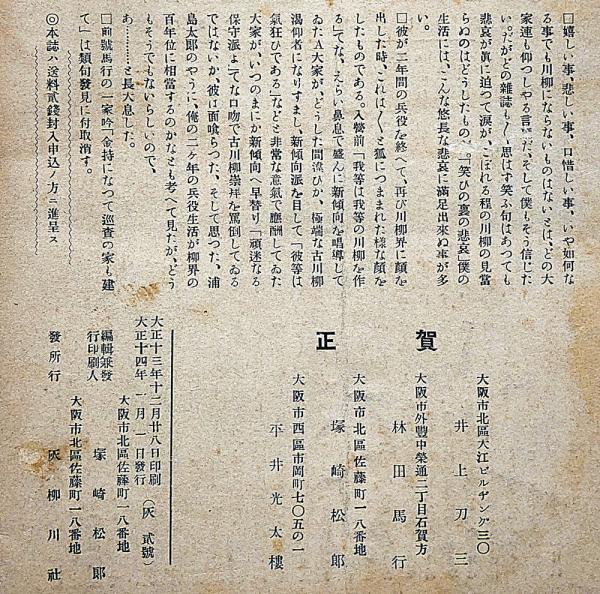 □嬉しい事、悲しい事、口惜しい事、いや如何な
る事でも川柳にならないものはないとは、どの大
家連も仰つしやる言葉だ、そして僕もそう信じた
い。だがどの雑誌も〱思はず笑ふ句はあつても
悲哀が眞に迫つて涙が、こぼれる程の川柳の見當
らぬのはどうしたもの。「笑ひの裏の悲哀」僕の
生活には、こんな悠長な悲哀に滿足出來ぬ事が多
い。
□彼が二年間の兵役を終へて、再び川柳界に顏を
出した時、これは〱と狐につままれた樣な顏を
したものである。入營前「我等は我等の川柳を作
る」でな、えらい鼻息で盛んに新傾向を唱導して
ゐたA大家が、どうした間違ひか、極端な古川柳
渇仰者になりすまし、新傾向派を目して「彼等は
氣狂ひである」などと非常な意氣で應酬してゐた
大家が、いつのまにか新傾向へ早替り「頑迷なる
保守派よ」てな口吻で古川柳崇拜を罵倒してゐる
ではないか、彼は面喰らつた、そして思つた、浦
島太郎のやうに、俺の二ヶ年の兵役生活が柳界の
百年位に相當するのかなとも考へて見たが、どう
もそうでもないらしいので、
あ………と長大息した。
□前號馬行の一家吟「金持になつて巡査の家も建
て」は類句發見に付取消す。
◎本誌ハ送料貳錢封入申込ノ方ニ進呈ス
賀正
大阪市北區大江ビルヂング三〇
井上刀三
大阪市外豊中榮通二丁目石賀方
林田馬行
大阪市北區佐藤町一八番地
塚崎松郎
大阪市西區市岡町七〇五の一
平井光太樓
大正十三年十二月廿八日印刷
大正十四年一月一日發行
(灰 貳號)
大阪市北區佐藤町一八番地
編輯兼發行印刷人 塚崎松郎
大阪市北區佐藤町一八番地
發所行 灰柳川社